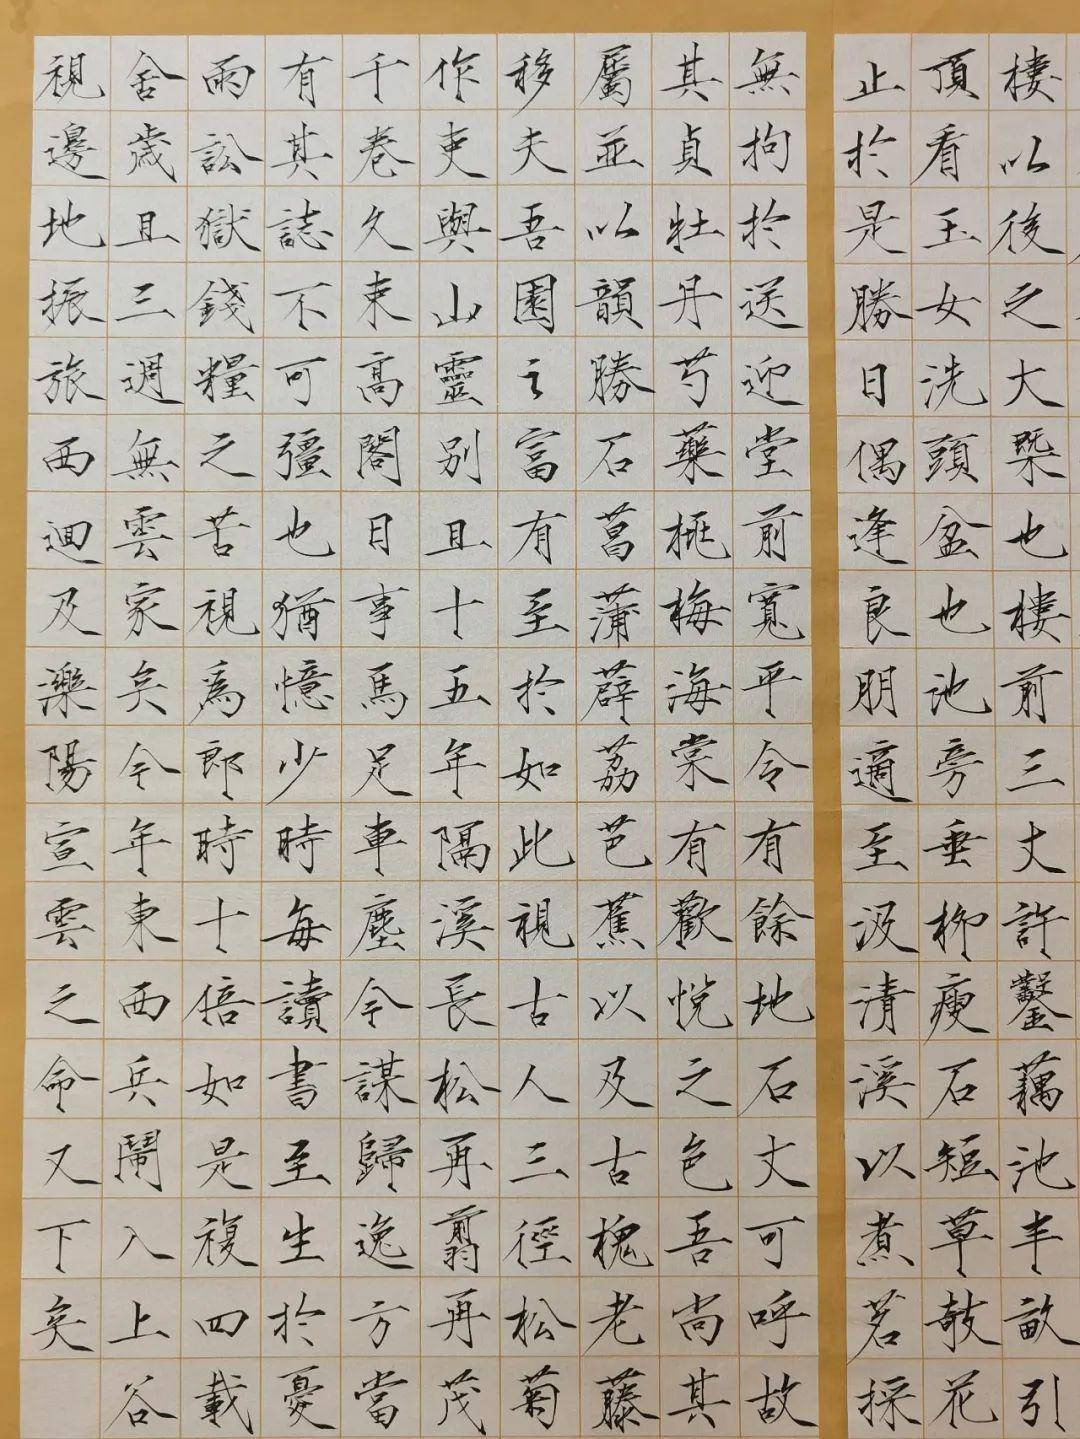 棲以後之大槩也樓前三丈許鑿藕池半畝引
頂看玉女洗頭盆也池旁垂柳瘦石短草敧花
止於是勝日偶逢良朋適至汲清溪以煮茗採
無拘於送迎堂前寬平令有餘地石丈可呼故
其貞牡丹芍藥桃梅海棠有歡悅之色吾尚其
屬並以韻勝石菖蒲薜荔芭蕉以及古槐老藤
移夫吾園之富有至於如此視古人三徑松菊
作吏與山靈別且十五年隔溪長松再翦再茂
千卷久束高閣日事馬足車塵今謀歸逸方當
有其誌不可彊也猶憶少時每讀書至生於憂
雨訟獄錢糧之苦視爲郎時十倍如是複四載
舍歲且三週無雲家矣今年東西兵鬧入上谷
視邊地振旅西迴及灤陽宣雲之命又下矣